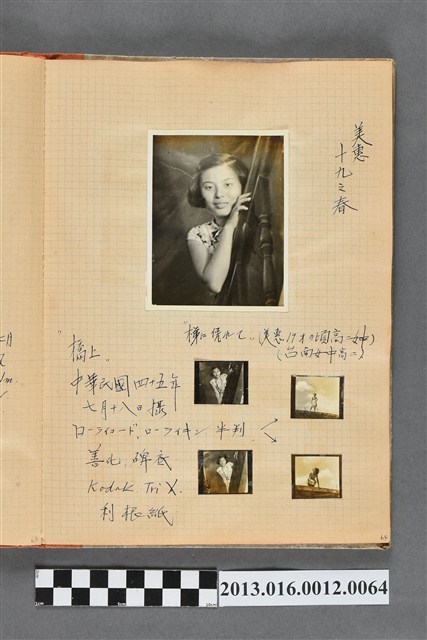 美惠
十九之春
美惠19才の頃高二
(台南女中高二)
"橋上"
中華民國四十五年
七月十八日攝
ローライコード, ローライキン 半判
Kodak Tri X.
利根紙
64
2013.016.0012.0064